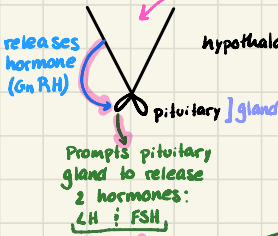 releases
hormone
(GnRH)
hypothala
pituitary ] gland
Prompts pituitary
gland to release
2 hormones:
LH & FSH